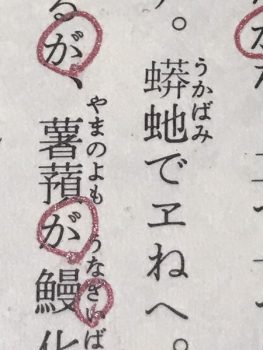 す。蟒虵でヱねへ。
うかばみ
るが、薯蕷が鰻化
やまのよも うなぎ